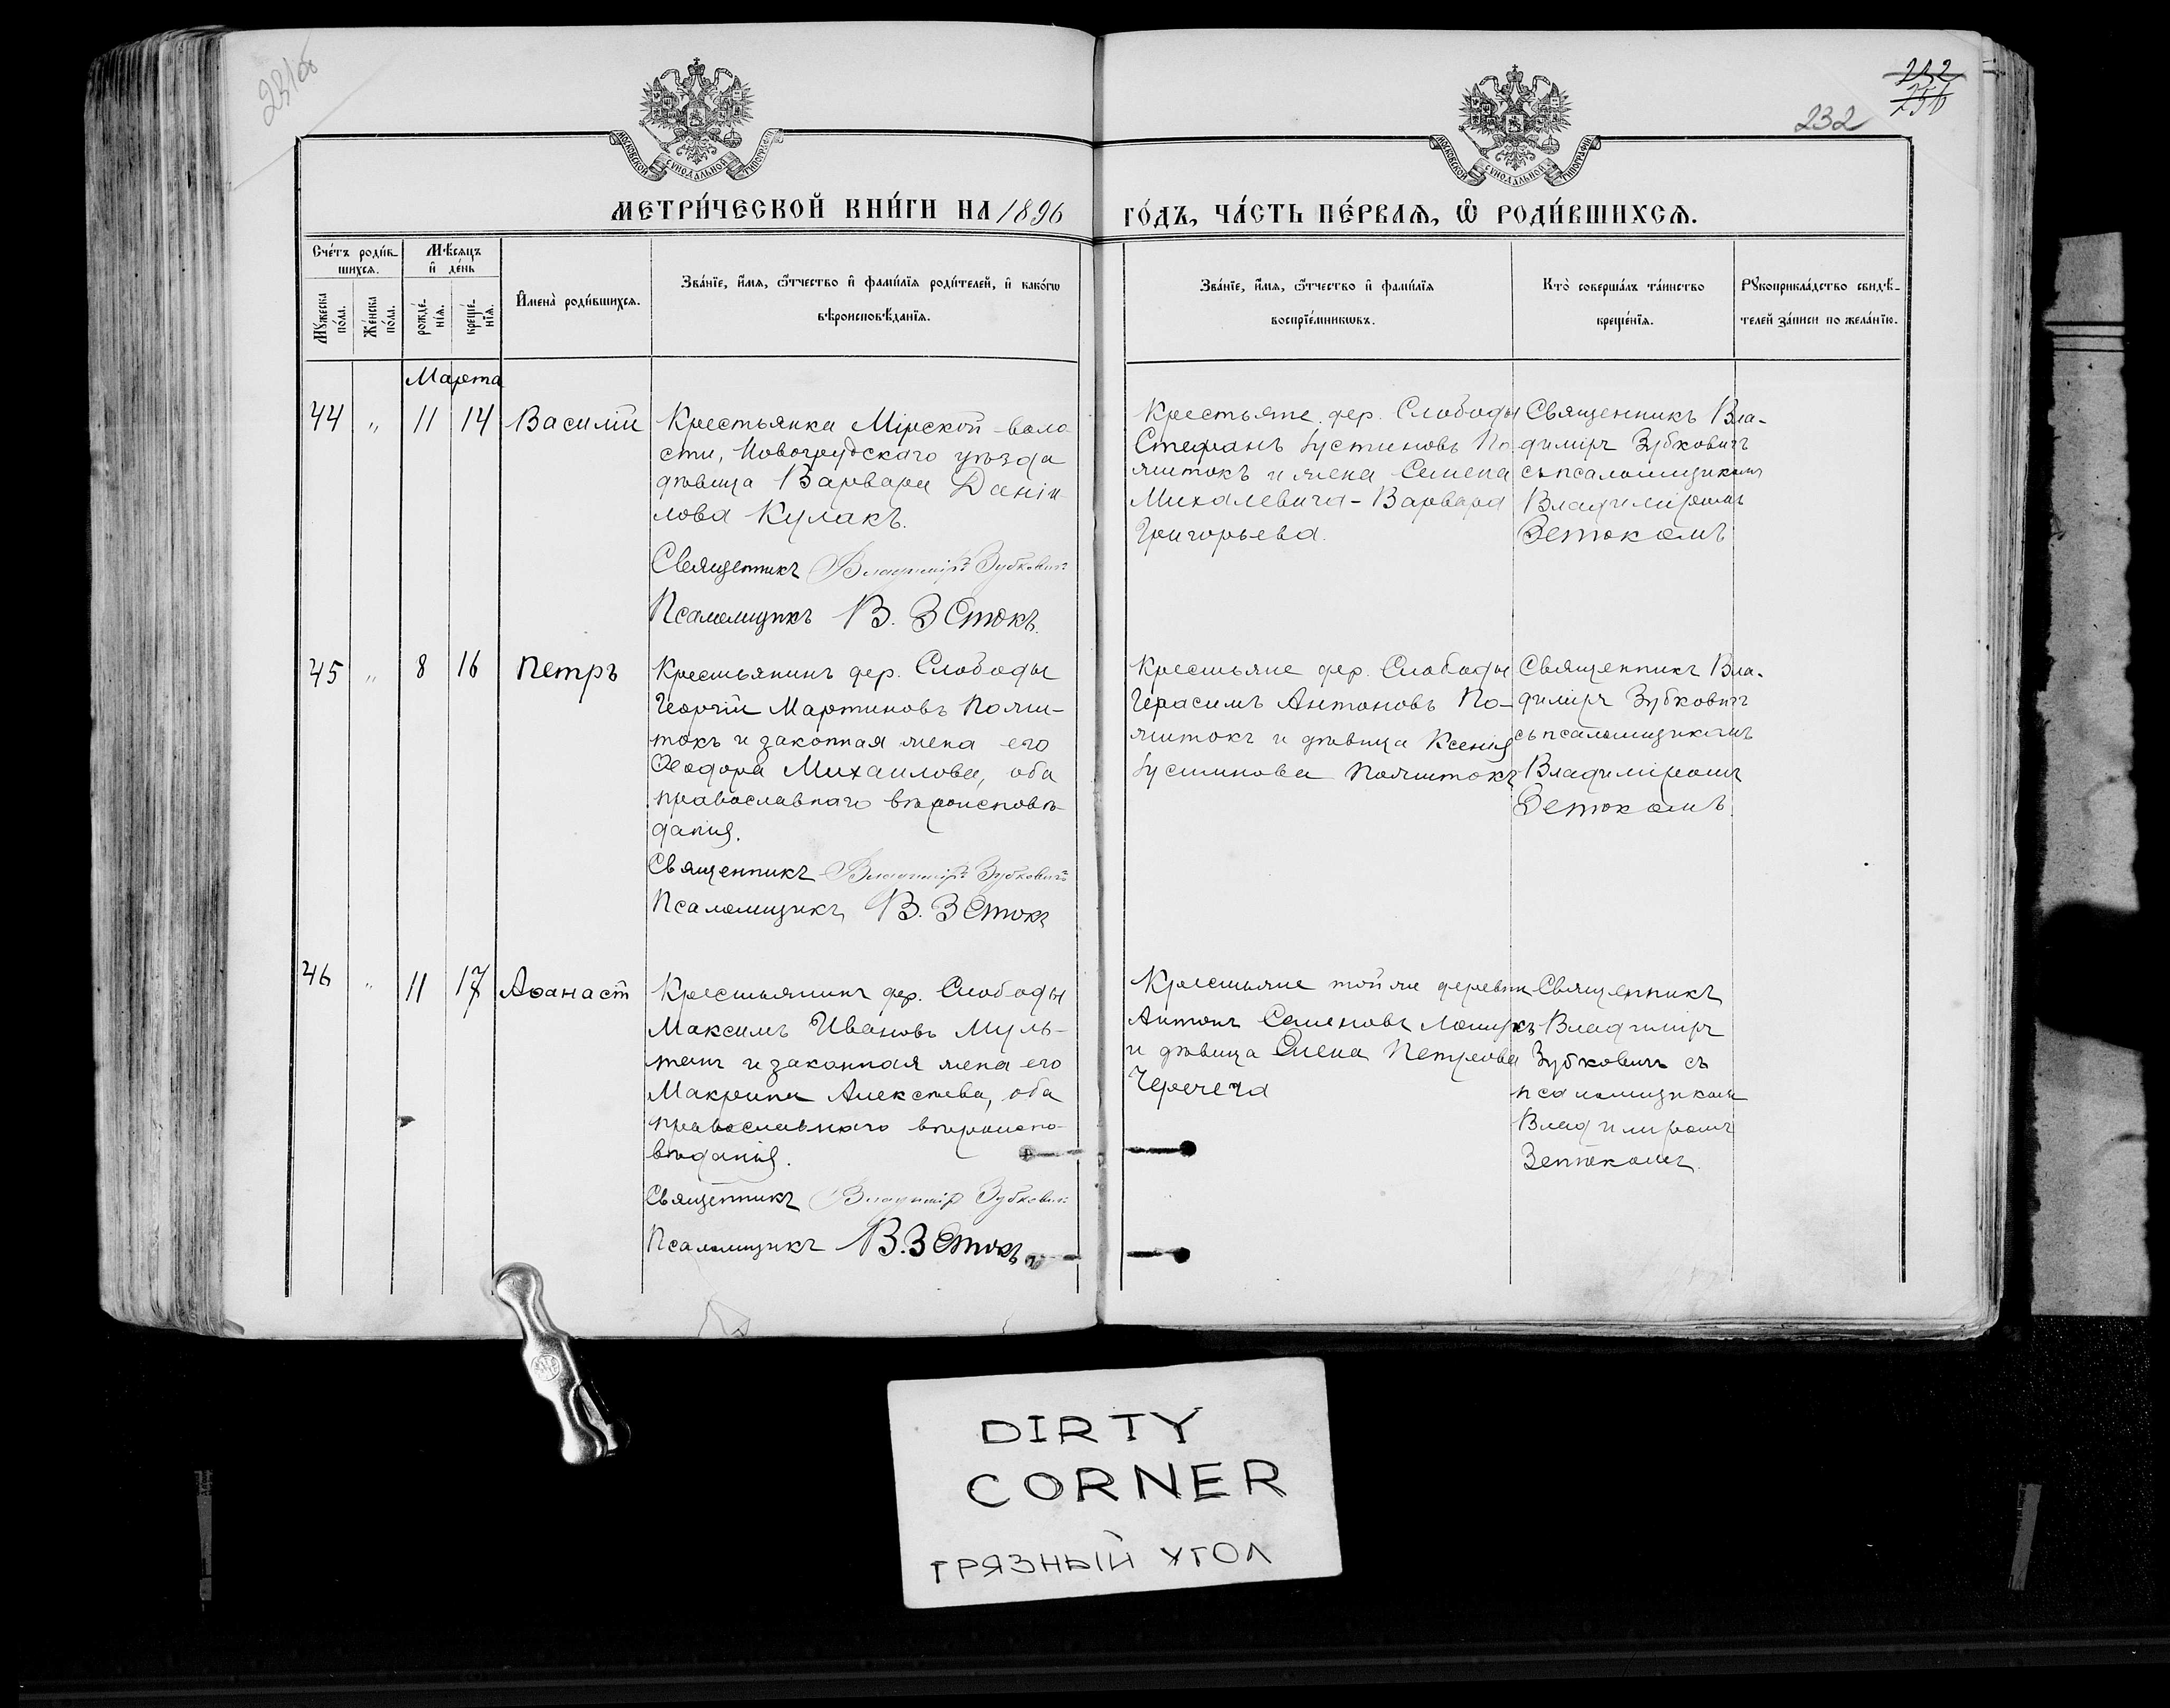 231об
212
256
232
МОСКОВСКОЙ СѴНОДАЛЬНОЙ ТИПОГРАФІИ
МОСКОВСКОЙ СѴНОДАЛЬНОЙ ТИПОГРАФІИ
МЕТРИ́ЧЕСКОЙ КНИ́ГИ НА 1896
ГО́ДЪ, ЧА́СТЬ ПЕ́РВАѦ, Ѽ РОДИ́ВШИХСѦ.
Сче́тъ роди́в-
шихсѧ.
Мѣсѧцъ
и҆ де́нь
Мꙋжеска
по́ла.
Же́нска
по́ла.
рожде́-
нїѧ.
креще́-
нїѧ.
И҆мена̀ роди́вшихсѧ.
Зва́нїе, и҆́мѧ, ѻ҆́тчество и҆ фами́лїѧ роди́телей, и҆ како́гѡ
вѣроисповѣ́данїѧ.
Зва́нїе, и҆́мѧ, ѻ҆́тчество и҆ фами́лїѧ
воспрїе́мникѡвъ.
Кто̀ соверша́лъ та́инство
креще́нїѧ.
Рꙋкоприкла́дство свидѣ́-
телей за́писи по жела́нїю.
Марта
44 " 11 14 Василій
Крестьянка Мірской воло-
сти, Новогрудскаго уѣзда
дѣвица Варвара Даніи-
лова Кулакъ.
Священникъ Владиміръ Зубковичъ
Псаломщикъ В. Зетокъ.
Крестьяне дер. Слободы
Стефанъ Іустиновъ По-
яштокъ и жена Семена
Михалевича - Варвара
Григорьева.
Священникъ Вла-
диміръ Зубковичъ
съ псаломщикомъ
Владиміромъ
Зетокомъ
45 " 8 16 Петръ
Крестьянинъ дер. Слободы
Георгій Мартиновъ Пояш-
токъ и законная жена его
Ѳеодора Михаилова, оба
православнаго вѣроисповѣ-
данія.
Священникъ Владиміръ Зубковичъ
Псаломщикъ В. Зетокъ
Крестьяне дер. Слободы
Герасимъ Антоновъ По-
яштокъ и дѣвица Ксенія
Іустинова Пояштокъ
Священникъ Вла-
диміръ Зубковичъ
съ псаломщикомъ
Владиміромъ
Зетокомъ.
46 " 11 17 Аѳанасій
Крестьянинъ дер. Слободы
Максимъ Ивановъ Муль-
танъ и законная жена его
Макрина Алексѣева, оба
православнаго вѣроиспо-
вѣданія.
Священникъ Владиміръ Зубковичъ
Псаломщикъ В. Зетокъ
Крестьяне той же деревни
Антонъ Семеновъ
и дѣвица Елена Петрова
Черечега
Священникъ
Владиміръ
Зубковичъ съ
псаломщикомъ
Владиміромъ
Зетокомъ.
DIRTY
CORNER
ГРЯЗНЫЙ УГОЛ